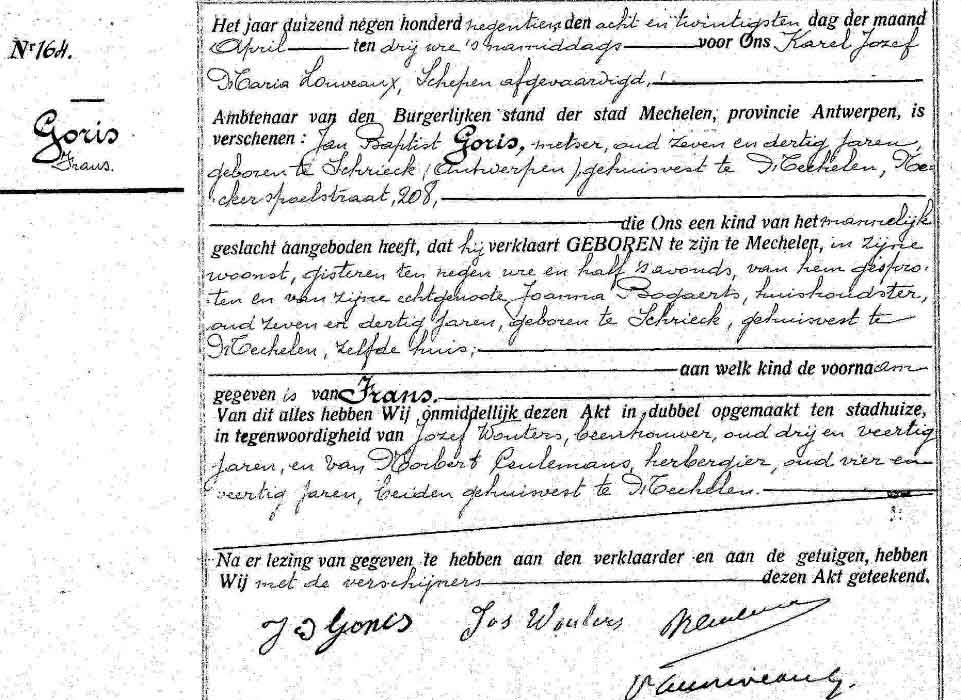 Nr 164.
Goris
Frans.
Het jaar duizend negen honderd negentien, den acht en twintigsten dag der maand
April ten drij ure 's namiddags voor Ons Karel Jozef
Maria Louveaux, Schepen afgevaardigd,
Ambtenaar van den Burgerlijken stand der stad Mechelen, provincie Antwerpen, is
verschenen : Jan Baptist Goris, metser, oud zeven en dertig jaren,
geboren te Schrieck (Antwerpen), gehuisvest te Mechelen, Ne-
ckerspoelstraat, 208,
die Ons een kind van het mannelijk
geslacht aangeboden heeft, dat hij verklaart GEBOREN te zijn te Mechelen, in zijne
woonst, gisteren ten negen ure en half 's avonds, van hem gespro-
ten en van zijne echtgenoote Joanna Bogaerts, huishoudster,
oud zeven en dertig jaren, geboren te Schrieck, gehuisvest te
Mechelen, zelfde huis;
aan welk kind de voornaam
gegeven is van Frans.
Van dit alles hebben Wij onmiddellijk dezen Akt in dubbel opgemaakt ten stadhuize,
in tegenwoordigheid van Jozef Wouters, beenhouwer, oud drij en veertig
jaren, en van Norbert Ceulemans, herbergier, oud vier en
veertig jaren, beiden gehuisvest te Mechelen.
Na er lezing van gegeven te hebben aan den verklaarder en aan de getuigen, hebben
Wij met de verschijners dezen Akt geteekend.
J B Goris Jos Wouters